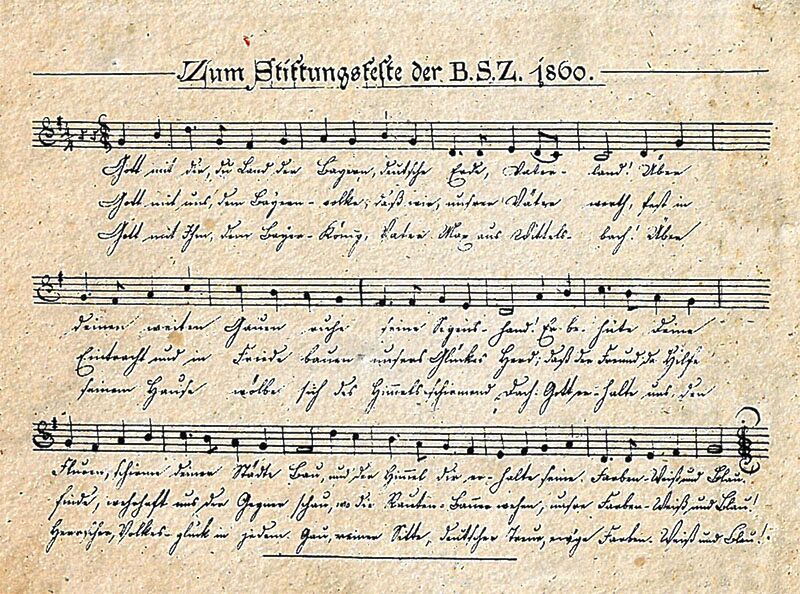 Zum Stiftungsfeste der B.S.Z. 1860.
Gott mit dir, du Land der Bayern, deutsche Erde, Vater- land! Über
Gott mit uns, dem Bayern-volke, daß wir, unsrer Väter werth, fest in
Gott mit Ihm, dem Bayer-König, Vater Max aus Wittels- bach! Über
deinen weiten Gauen ruhe seine Segens-hand! Er be- hüte deine
Eintracht und in Friede bauen unsers Glückes Heerd; daß der Freund da Hilfe
seinem Hause wölbe sich des Himmels-schirmend Dach. Gott er-halte uns den
Fluren, schirme deiner Städte Bau, und der Himmel dir er-halte seine Farben-Weiß und Blau.
finde, wehrhaft uns der Gegner schau, wo die Rauten-Banner wehen, unsre Farben-Weiß und Blau!
Herrscher, Volkes-glück in jedem Gau, reiner Sitte, deutscher Treue, ew'ge Farben-Weiß und Blau!